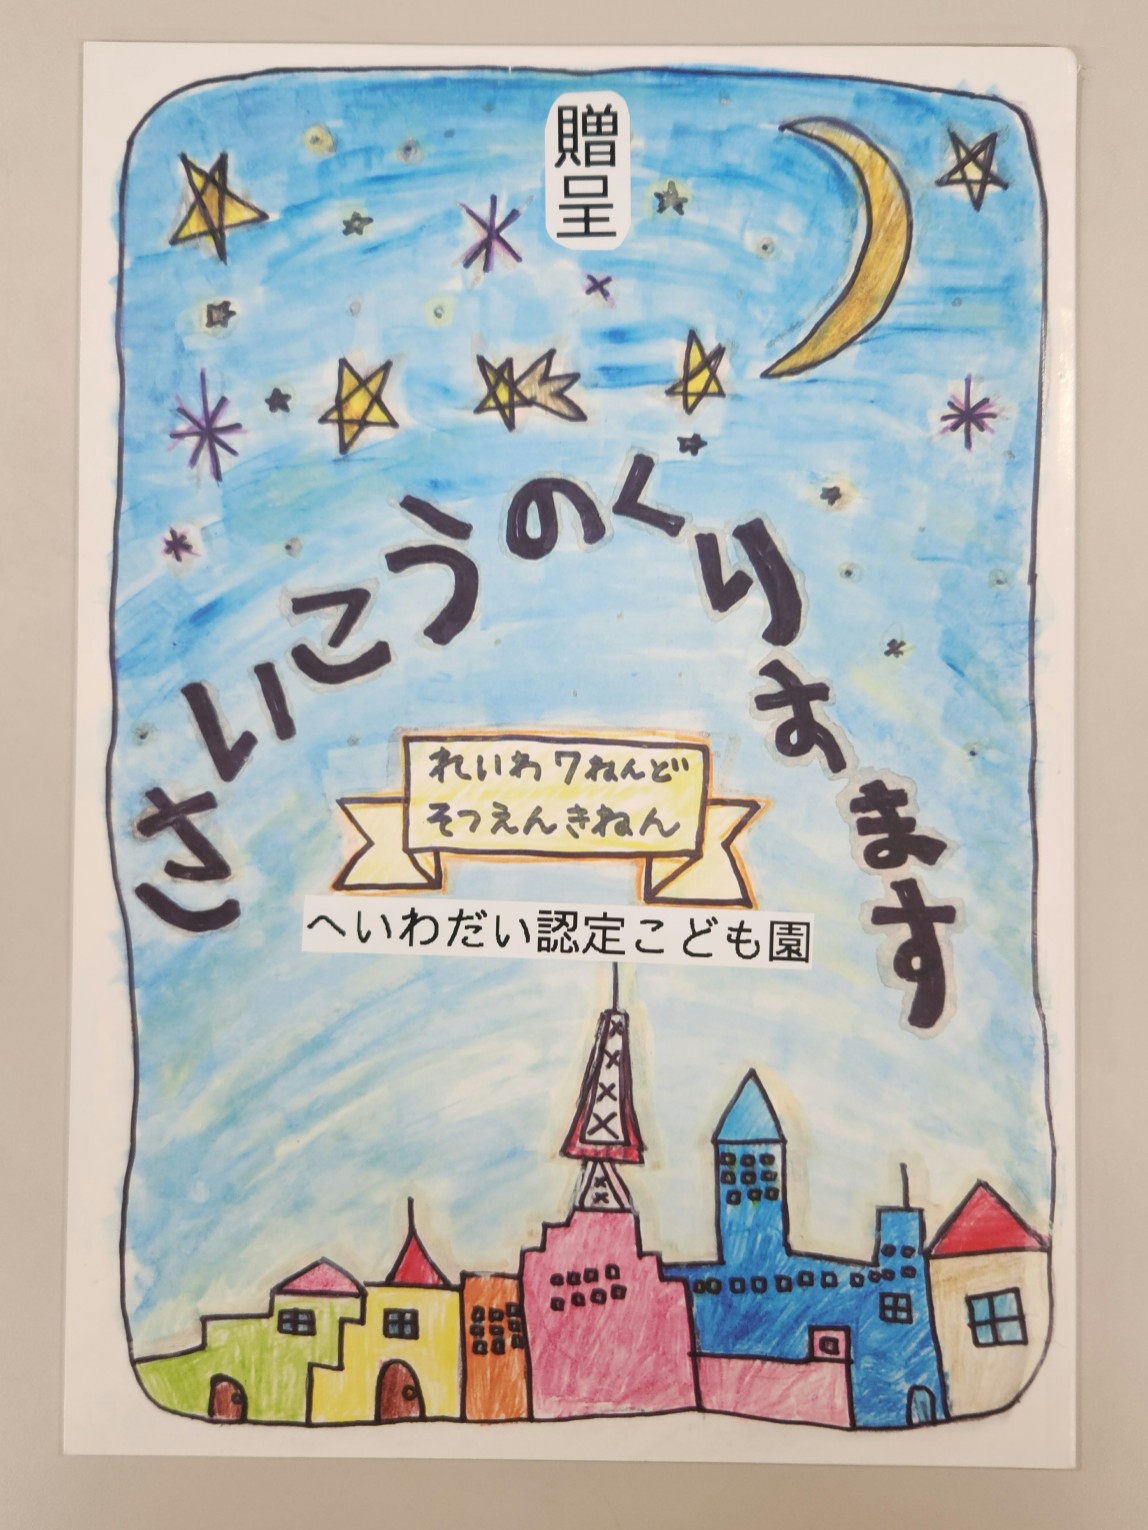 贈呈
さいこうのくりすます
れいわ7ねんど
そつえんきねん
へいわだい認定こども園